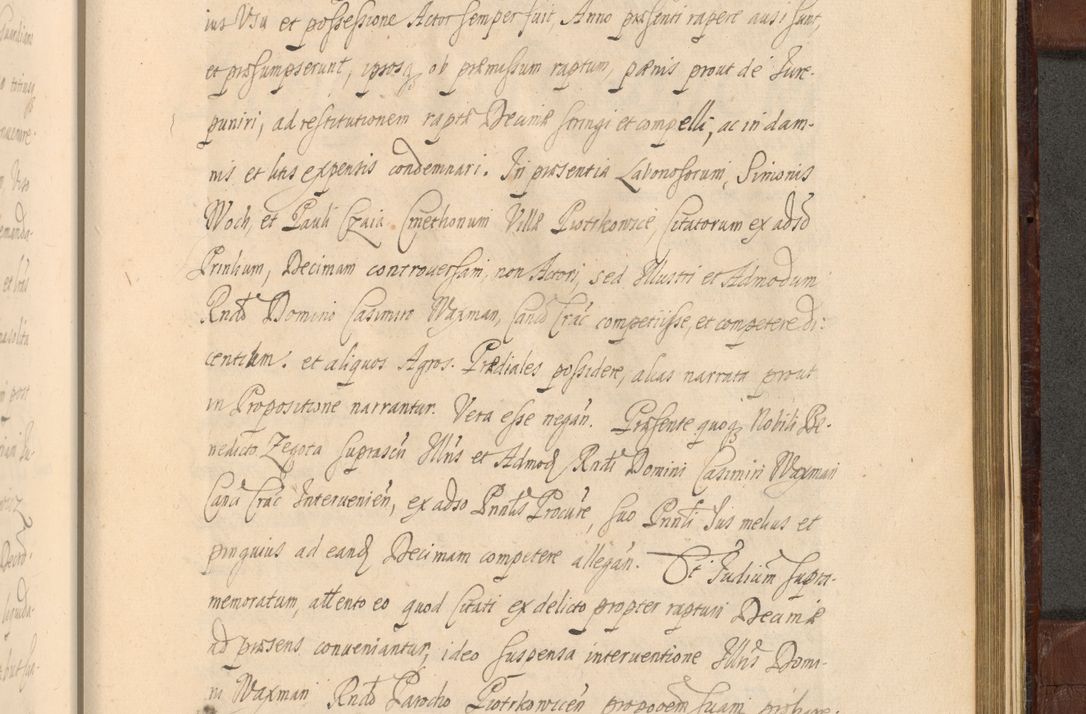 ius Usu et possessione Actor semper fuit, Anno praesenti rapere ausi sunt,
et praesumpserunt, ipsosq3 ob praemissum raptum, paenis prout de Iure
puniri, ad restitutionem raptae Decimae stringi et compelli, ac in dam-
nis et litis expensis condemnari. In praesentia Laboriosorum, Simonis
Woch, et Pauli Czaia Cmethonum Villae Piotrkowice, Citatorum ex adso
Prinlium, Decimam controversam, non Actori, sed Illustri et Admodum
Rndo Domino Casimiro Waxman, Cano Crac competiisse, et competere di:
centium. et aliquos Agros. Praediales possidere, alias narrata prout
in Propositione narrantur. Vera esse negan. Praesente quoq3 Nobili Be-
nedicto Zegota suprascri Illris et Admod Rndi Domini Casimiri Waxman
Canci Crac Intervenien, ex adso Pnntis Procure, suo Pnnli Ius melius et
pinguius ad eand Decimam competere allegan. Et Iudicium supra-
memoratum, attento eo quod Citati ex delicto propter raptum Decimae
ad praesens conveniantur, ideo suspensa interventione Illris Domi-
ni Waxman Rndo Parocho Piotrkowicen propoõem suam probare